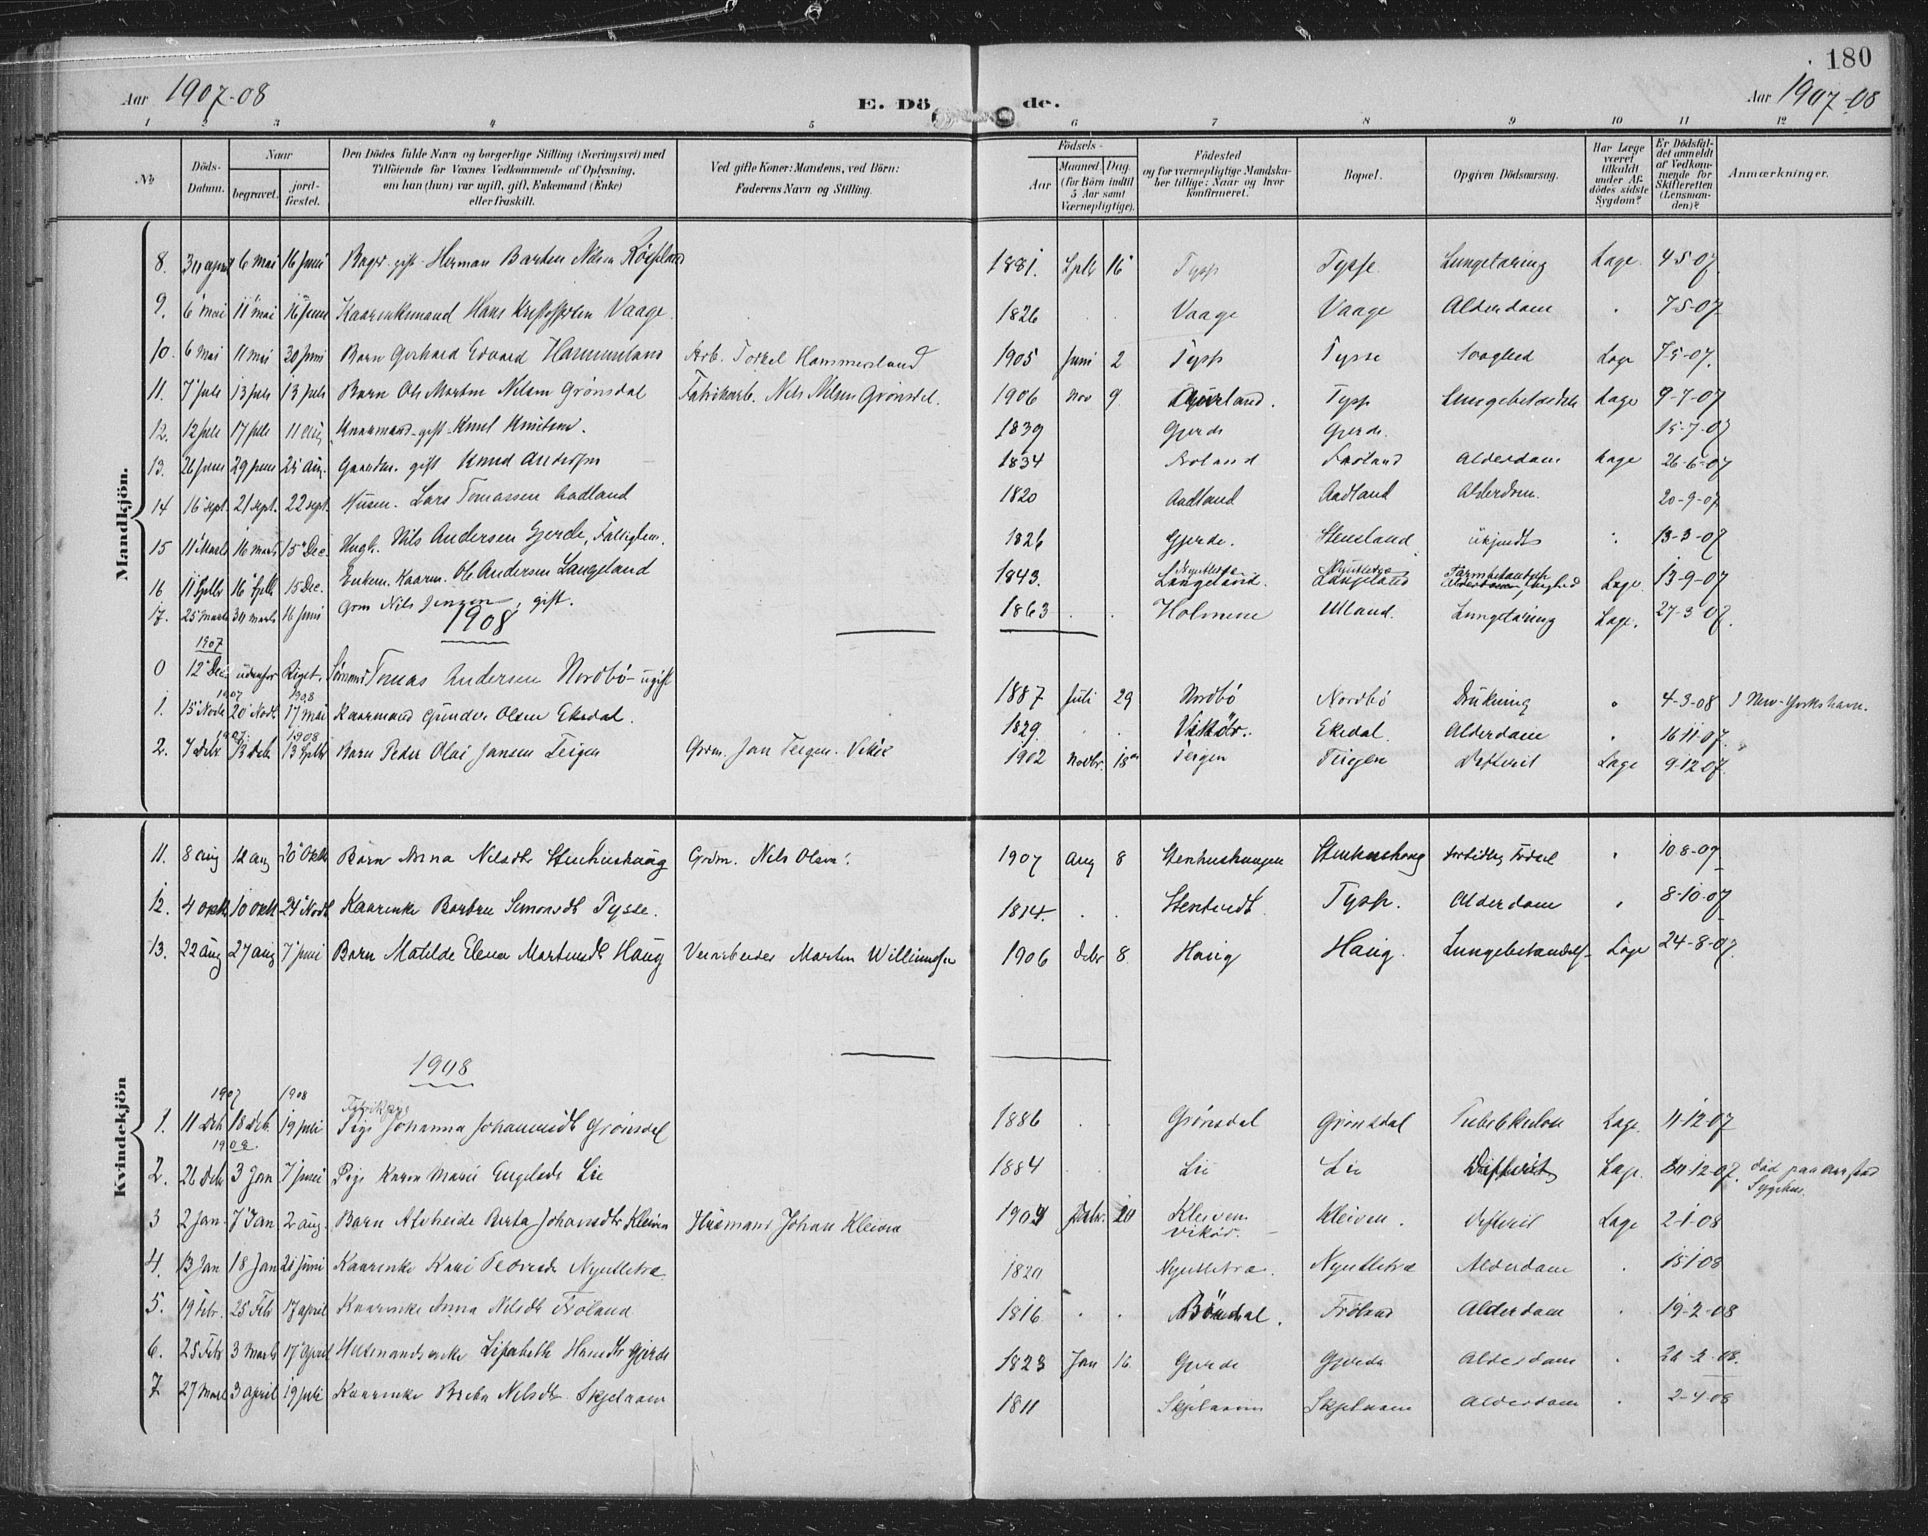 180
Aar 1907-08
E. Dö de.
Aar 1907-08
1 2 3 4 5 6 7 8 9 10 11 12
No
Döds-Datum.
Naar
begravet.
jordfæstet.
Den Dödes fulde Navn og borgerlige Stilling (Næringsvei) med
Tilföiende for Voxnes Vedkommende af Oplysning,
om han (hun) var ugift, gift, Enkemand (Enke)
eller fraskilt.
Ved gifte Koner: Mandens, ved Börn:
Faderens Navn og Stilling.
Födsels-
Aar
Maaned. Dag.
(for Börn indtil
5 Aar samt
Værnepligtige).
Födested
og for værnepligtige Mandskaber tillige: Naar og hvor
konfirmeret.
Bopæl.
Opgiven Dödsaarsag.
Har Læge
været
tilkaldt
under Afdödes sidste
Sygdom?
Er Dödsfaldet anmeldt
af Vedkommende for
Skifteretten
(Lensmanden)?
Anmærkninger.
Mandkjön.
8. 30 april 6 mai 16 Juni Bager gift Herman Barten Nilsen 1881. Sptb 16 Tysse Tysse Lungetæring Læge 4-5-07
9. 6 mai 11 mai 16 Juni Hans Vaage 1826 Vaage Vaage Alderdom 7-5-07
10. 6 mai 11 mai 30 Juni Barn Gerhard Edvard Hammerland Arb. Torkel Hammersland 1905 Juni 2 Tysse Tysse Læge 7-5-07.
11. 7 Juli 13 Juli 13 Juli Barn Ole Martin Nilsen Grönsdal Fabrikarb. Nils Nilsen Grönsdal. 1906 Nov 9 Tysse Læge 9-7-07
12. 12 Juli 17 Juli 11 Aug gift Knut Knutsen. 1839 Gjerde Gjerde. 15-7-07
13. 26 Juni 29 Juni 25 Aug. gift Knud Andersen 1834 Froland Froland Alderdom Læge 26-6-07
14 16 Sept. 21 Sept. 22 Sept. Husm. Lars Tomassen Aadland 1820 Aadland Aadland Alderdom. 20-9-07
15 11 Marts 16 Marts 15 Dec. Ungk. Nils Andersen Gjerde, Fattiglem. 1826 Gjerde. Stensland ukjendt 13-3-07
16 11 Sptbr 16 Sptb 15 Dec. Enkem. Kaarm. Ole Andersen Langeland 1843. Langeland. Langeland Læge 13-9-07
17. 25 Marts 30 Marts 16 Juni Grm Nils Jensen, gift. 1863 Holmene Ulland. Lungetæring Læge. 27-3-07.
1908
1907
0 12 Dec. udenfor Riget. Sömand Tomas Andersen Nordbö - ugift 1887 Juli 29 Nordbö Nordbö Drukning 4-3-08 I New-Yorks havn.
1907 1908
1. 15 Novb 20 Novb. 17 Mai Kaarmand Gunder Olsen Ekedal. 1829. Vikör. Ekedal. Alderdom 16-11-07.
1907 1908
2. 7 Debr 13 Deb 13 Sptbr Barn Peder Olai Jansen Teigen Grdm. Jan Teigen. Vikör 1902 Novbr. 18 Teigen Teigen Difterit Læge 9-12-07.
Kvindekjön
11. 8 Aug 12 Aug 20 Oktb Barn Anna Nelsdtr Stenhushaug Grdm. Nels Olsen. 1907 Aug 8 Stenhushaugen Stenhushaug for tidlig Födsel 10-8-07
12. 4 Oktb 10 Oktb 24 Novb Kaarenke Barbru Simonsdt Tysse. 1814. Stentvedt Tysse. Alderdom 8-10-07
13. 22 Aug 27 Aug 7 Juni Barn Matilde Elena Martinsdt Haug Veiarbeider Martin Williamsen 1906 Debr 8 Haug Haug. Læge 24-8-07.
1908
1907 1908
1. 11 Deb 18 Deb. 19 Juli Pige Johanna Johannesdt Grönsdal 1886 Grönsdal Grönsdal Tuberkulose Læge 11-12-07
1908
2. 26 Deb 3 Jan 7 Juni Pige Karen Marie Engelsdt Lie 1884 Lie Lie Difterit Læge. 12-07. död paa Aarstad
Sygehus.
3 2 Jan 7 Jan 2 Aug. Barn Alvheide Berta Johansdtr Kleiven Husmand Johan Kleiven Kleiven
Vikör. Kleiven. Difterit Læge 2-1-08
4. 13 Jan 18 Jan 21 Juni Kaarenke Kari Pedersdt Nyutletræ 1820 Nyutletræ. Nyutletræ Alderdom 15-1-08
5. 19 Febr. 25 Feb 17 April Kaarenke Anna Nelsdt Fröland 1816 Fröland Alderdom 19-2-08
6. 25 Feb 3 Marts 17 April Husmandsenke Lisabeth Hansdtr Gjerde 1823 Jan 16 Gjerde Gjerde Alderdom 26-2-08.
7 27 Marts 3 April 19 Juli Kaarenke Nelsdt Skjelaam 1811 Skjelaam Skjelaam Alderdom 2-4-08